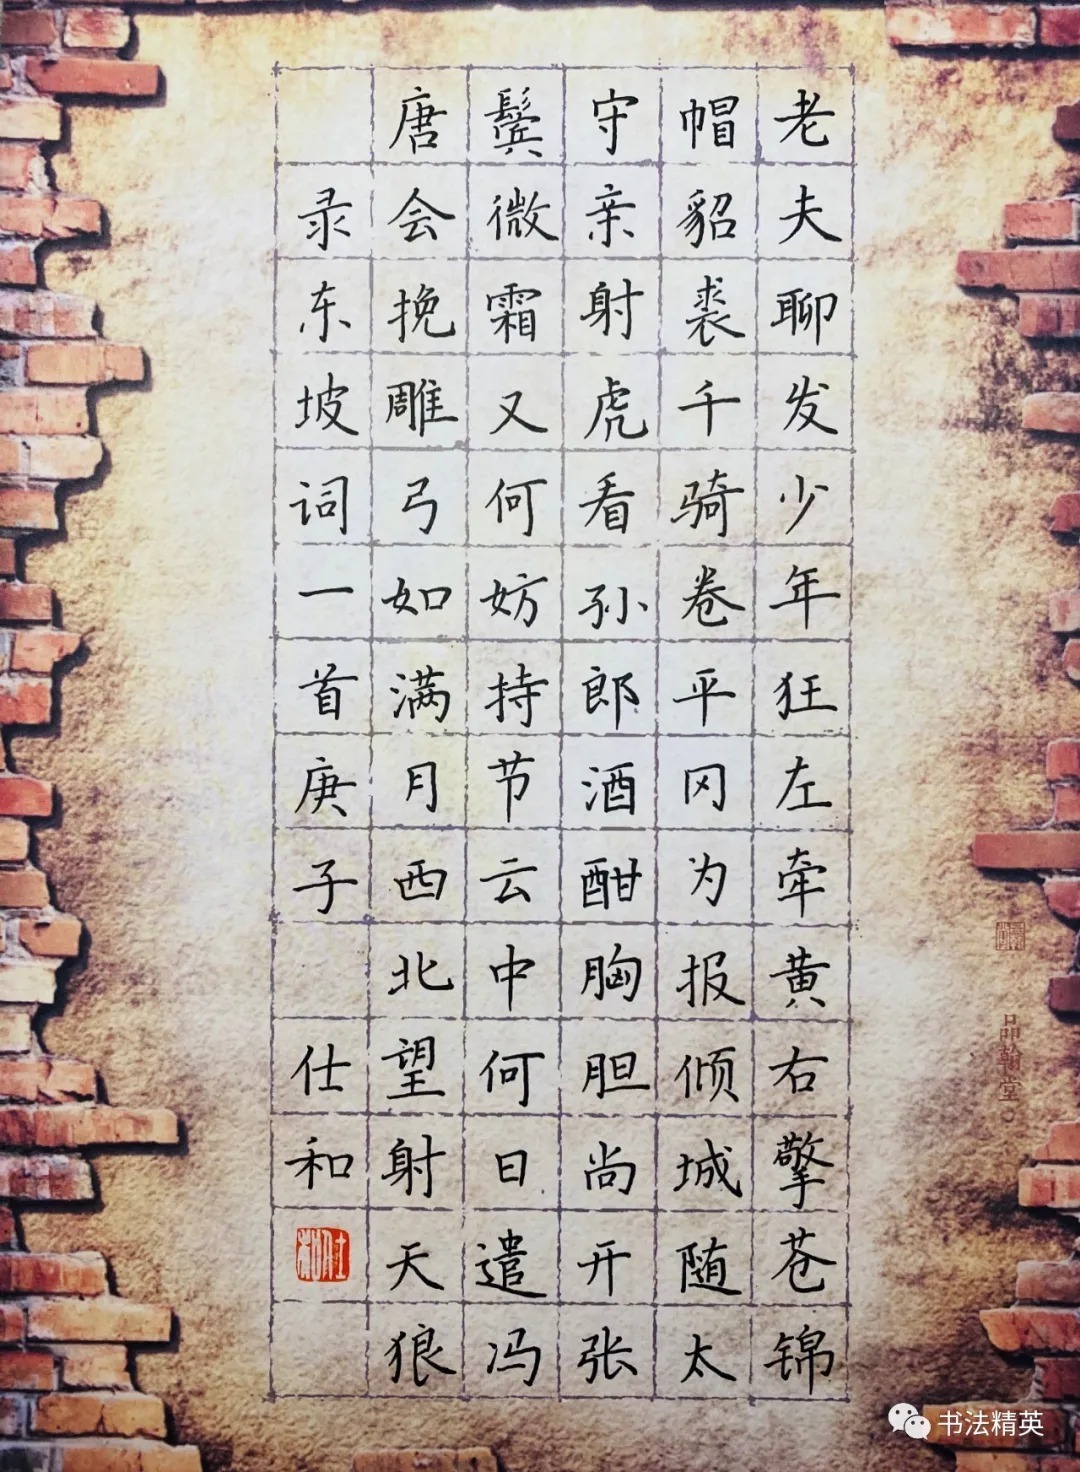 老夫聊发少年狂左牵黄右擎苍锦
帽貂裘千骑卷平冈为报倾城随太
守亲射虎看孙郎酒酣胸胆尚开张
鬓微霜又何妨持节云中何日遣冯
唐会挽雕弓如满月西北望射天狼
录东坡词一首庚子 仕和
仕和
品翰堂
书法精英